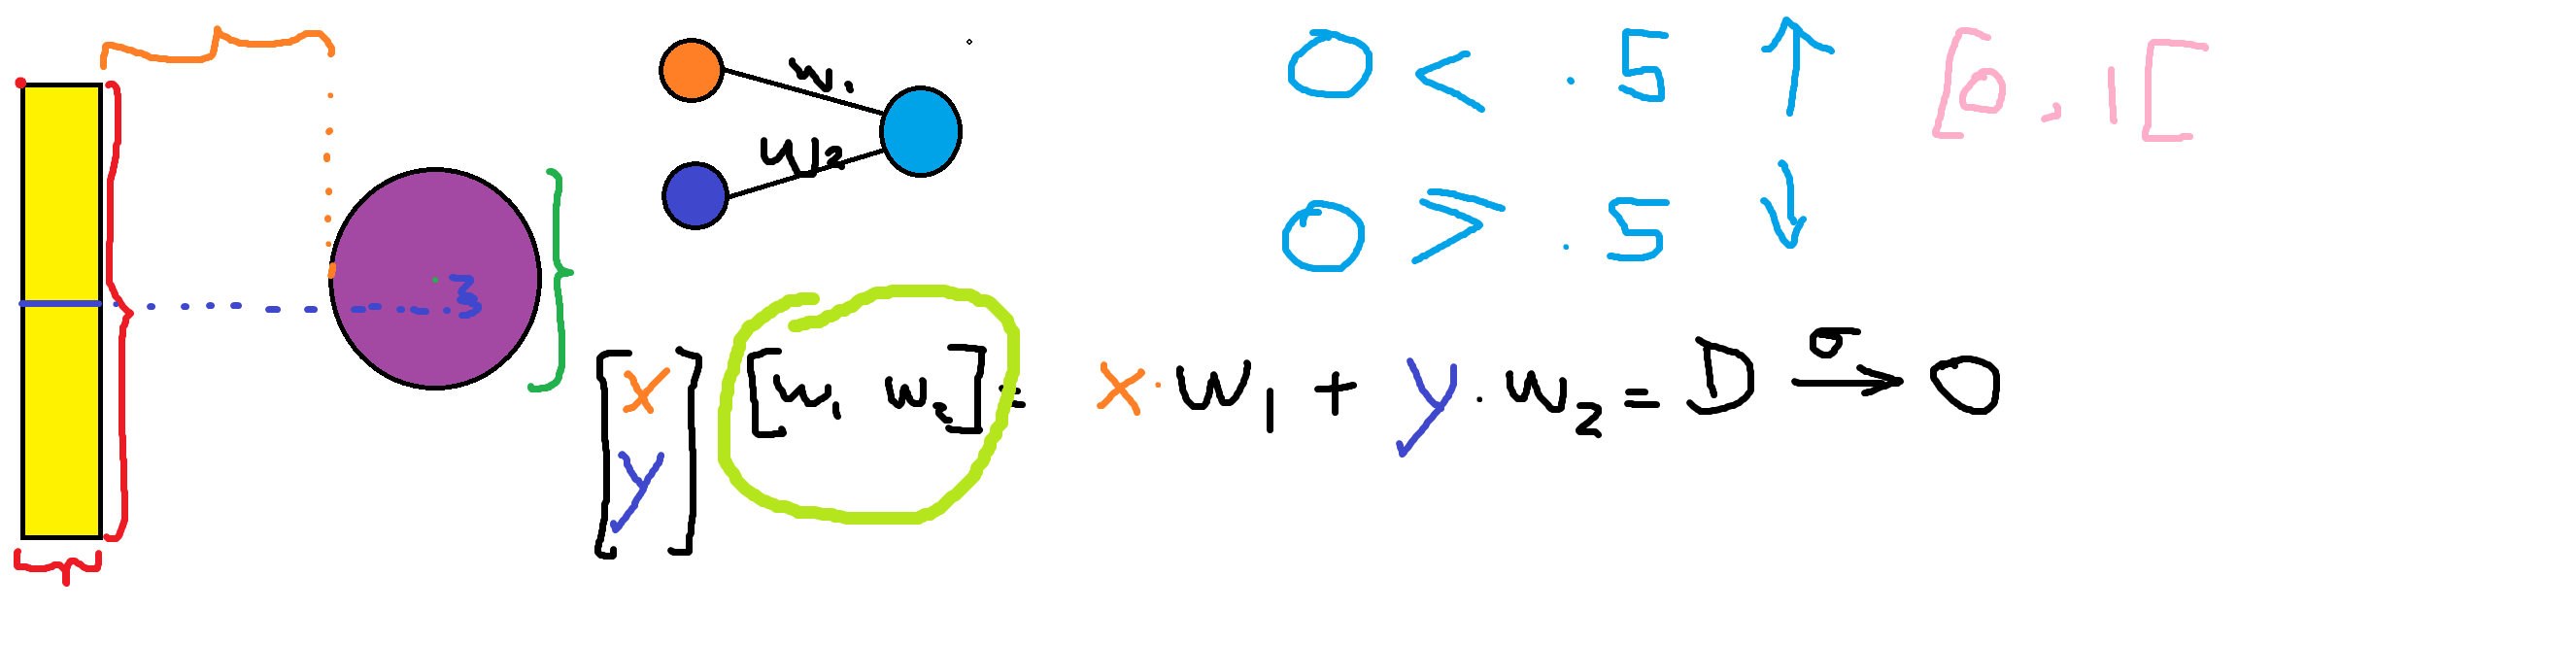 w₁
w₂
O < .5 ↑ [0,1[
O ⩾ .5 ↓
3
[x y] [w₁ w₂] = x · w₁ + y · w₂ = D →σ O